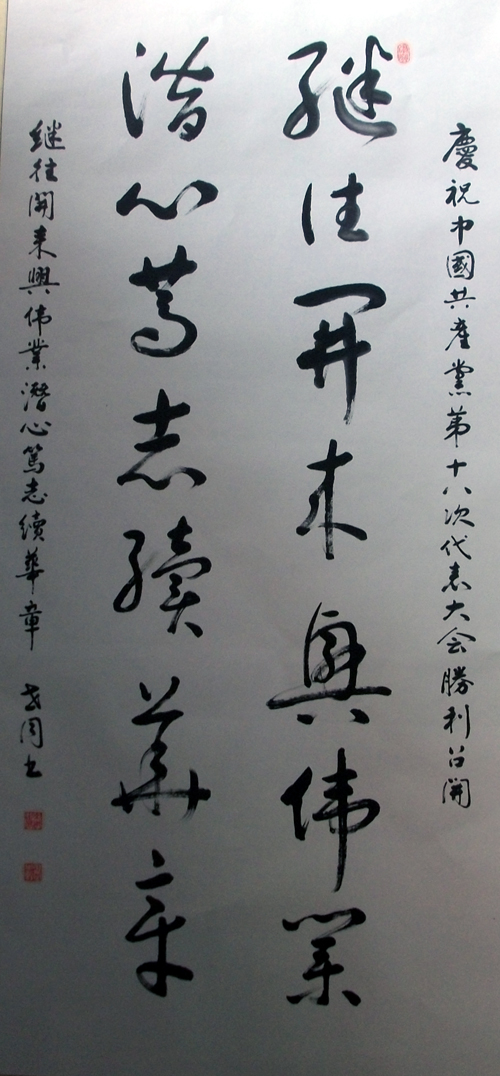 慶祝中國共產黨第十八次代表大会勝利召開
继往開来興伟業
潛心篤志續華章
继往開来興伟業潛心篤志續華章
书